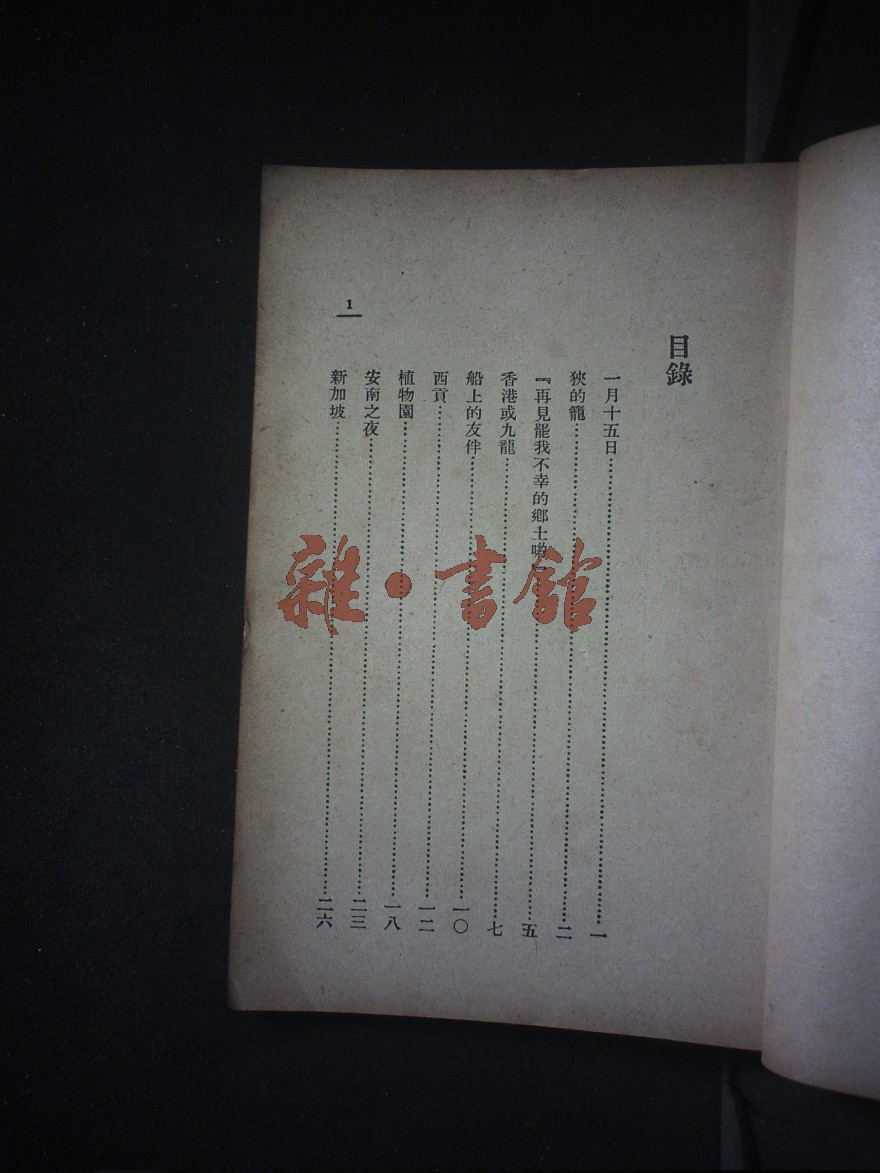 目錄
一月十五日……一
狹的籠……二
『再見罷我不幸的鄉土喲』……五
香港或九龍……七
船上的友伴……一〇
西貢……一二
植物園……一八
安南之夜……二三
新加坡……二六
1
雜·書館